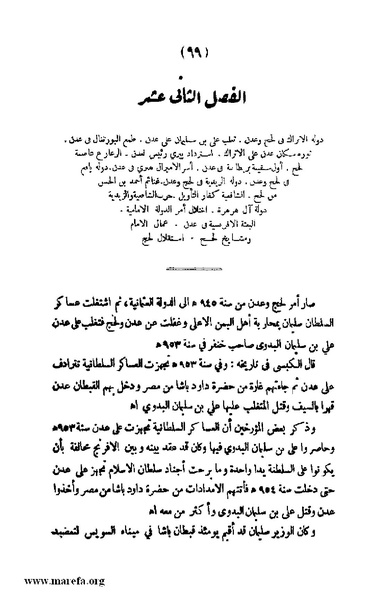 (٩٩)
الفصل الثانى عشر
دولة الاتراك فى لحج وعدن . تغلب على بن سليمان على عدن . طمع البورتغال فى عدن .
ثورة سكان عدن على الاتراك . استرداد بيرى رئيس لعدن . الرعارع عاصمة
لحج . أول سفينة بريطانية فى عدن . أسر الاميرال هنرى فى عدن . دولة يافع
فى لحج وعدن . دولة الزيدية فى لحج وعدن . غنائم أحمد بن الحسن
من لحج . الشافعية كفار التأويل . حرب الشافعية والزيدية
دولة آل هرهرة . اختلال أمر الدولة الامامية .
البعثة الافرنسية فى عدن . عمال الامام
ومشايخ لحج . استقلال لحج
صار أمر لحج وعدن من سنة ٩٤٥ ه الى الدولة العثمانية ، ثم اشتغلت عساكر
السلطان سليمان بمحاربة أهل اليمن الاعلى وغفلت عن عدن ولحج فتغلب على عدن
على بن سليمان البدوى صاحب خنفر فى سنة ٩٥٣ ه
قال الكبسى فى تاريخه : وفى سنة ٩٥٣ ه تجهزت العساكر السلطانية تترادف
على عدن ثم جاءتهم غارة من حضرة داود باشا من مصر ودخل بهم القبطان عدن
قهرا بالسيف وقتل المتغلب عليها على بن سليمان البدوى اه
وذكر بعض المؤرخين أن العساكر السلطانية تجهزت على عدن سنة ٩٥٣ ه
وحاصروا على بن سليمان البدوى فيها وكان قد عقد بينه وبين الافرنج محالفة بأن
يكونوا على السلطنة يدا واحدة وما برحت أجناد سلطان الاسلام تجهز على عدن
حتى دخلت سنة ٩٥٤ ه فأتتهم الامدادات من حضرة داود باشا من مصر وأخذوا
عدن وقتل على بن سليمان البدوى وأكثر من معه اه
وكان الوزير سليمان قد أقيم يومئذ قبطان باشا فى ميناء السويس لتعضيد
www.marefa.org